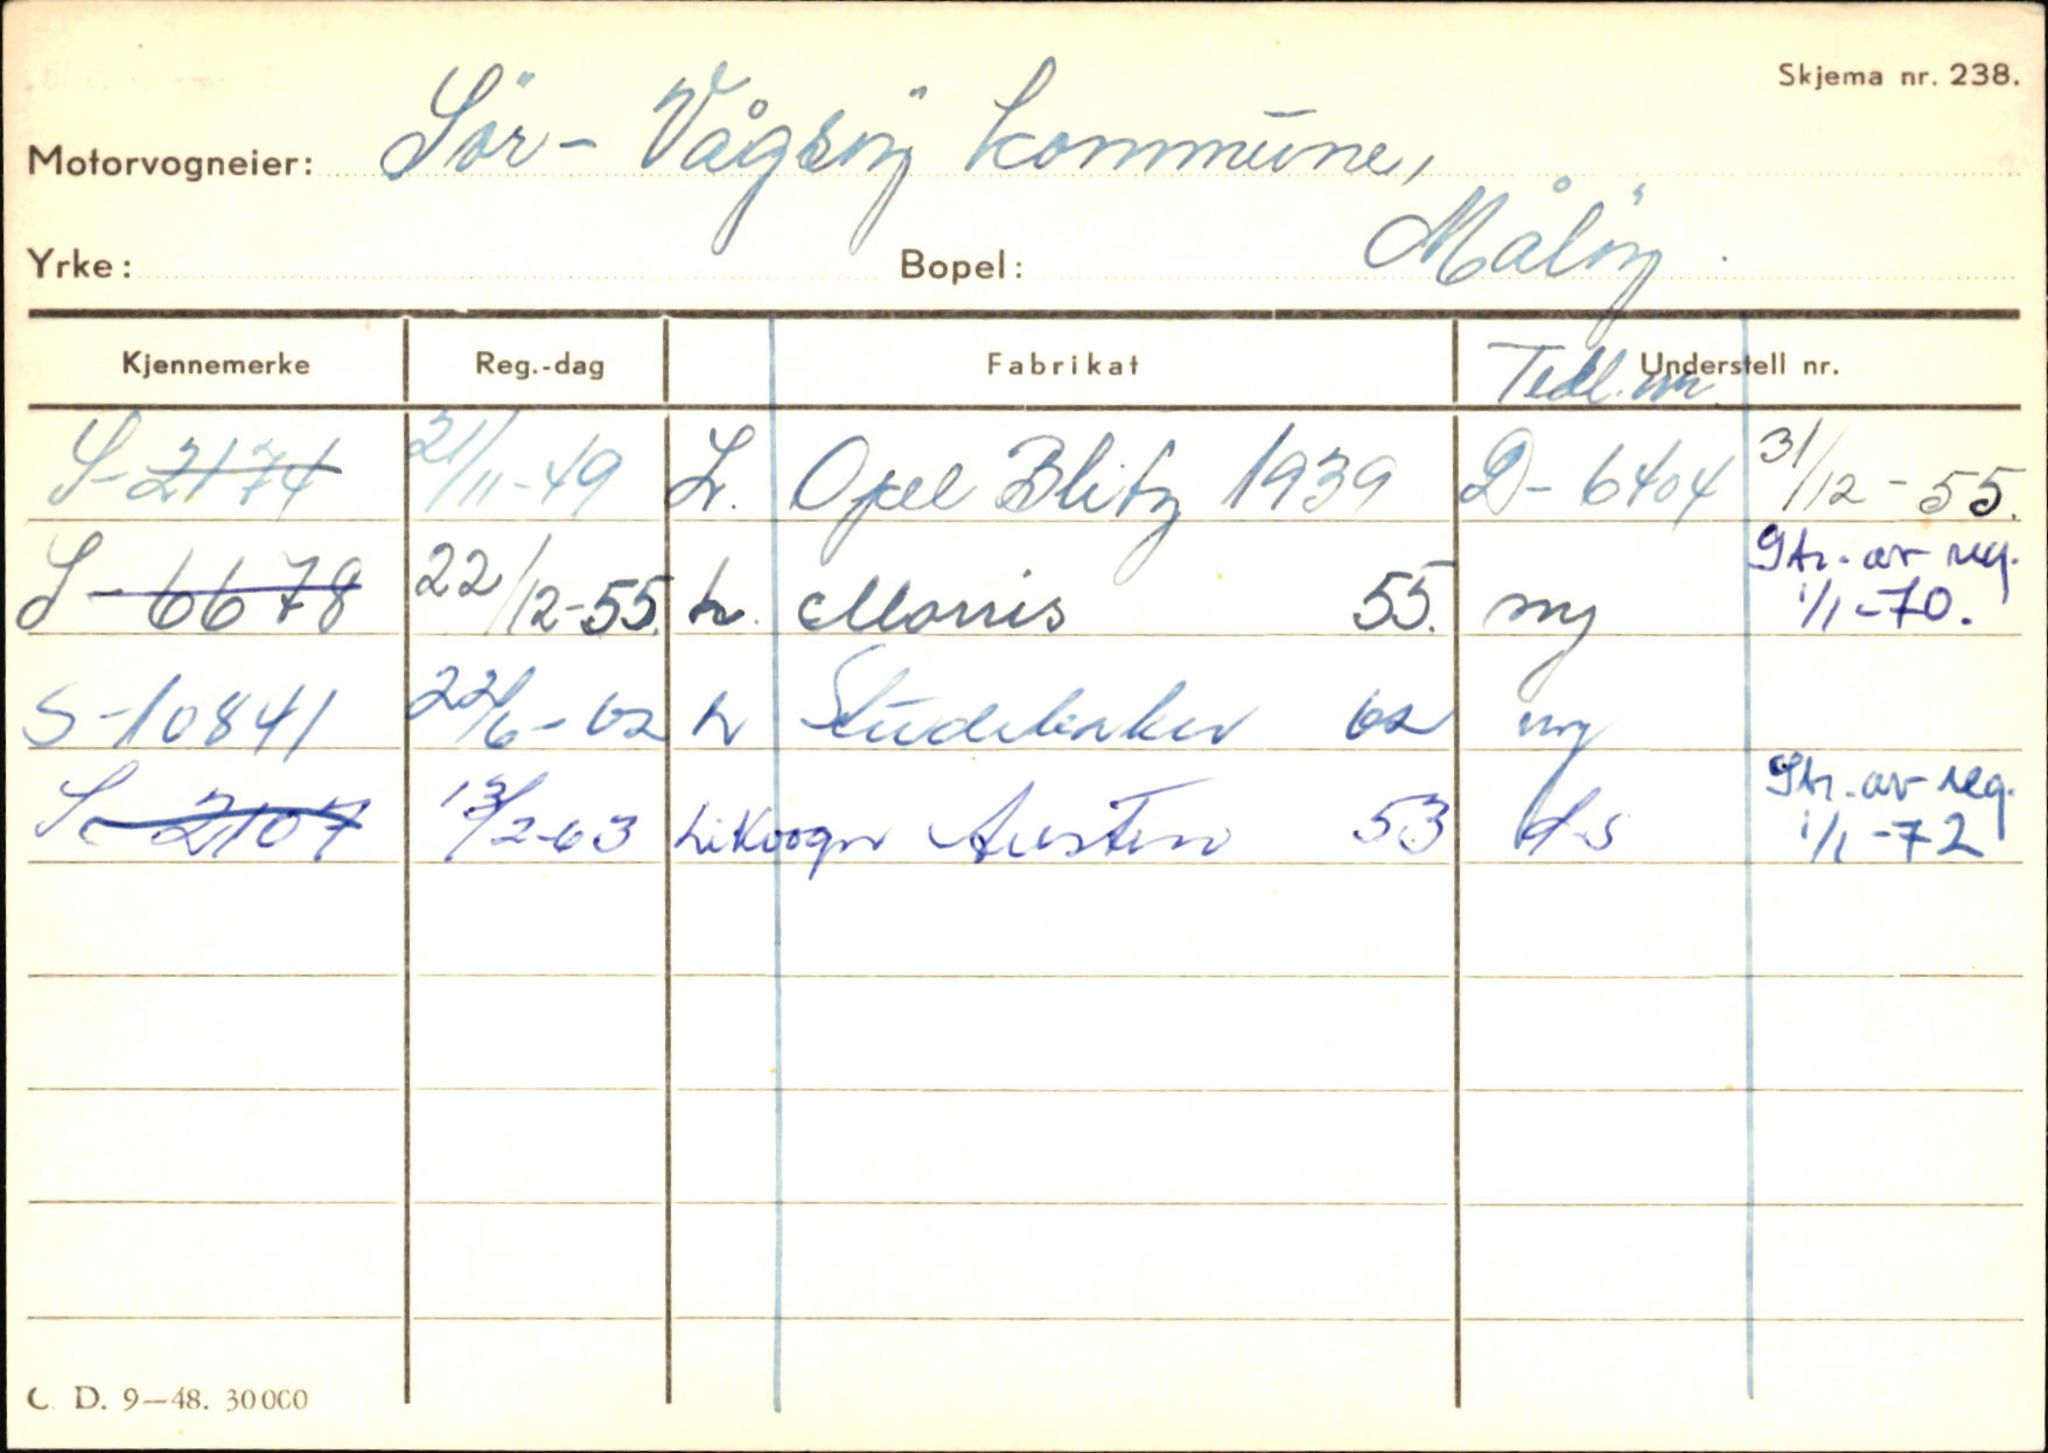 Skjema nr. 238.
Motorvogneier: Sör-Vågsöy kommune,
Yrke: Bopel: Målöy.
Kjennemerke Reg.-dag Fabrikat Tidl. nr. Understell nr.
S-2174 21/11-49 L. Opel Blitz 1939 D-6404 31/12-55.
S-6678 22/12-55. L. Morris 55. ny Str. av reg. 1/1-70.
S-10841 22/6-62 L Studebaker 62 ny
S-2107 13/2-63 Likvogn Austin 53 d-s Str. av reg. 1/1-72
C. D. 9—48. 30000